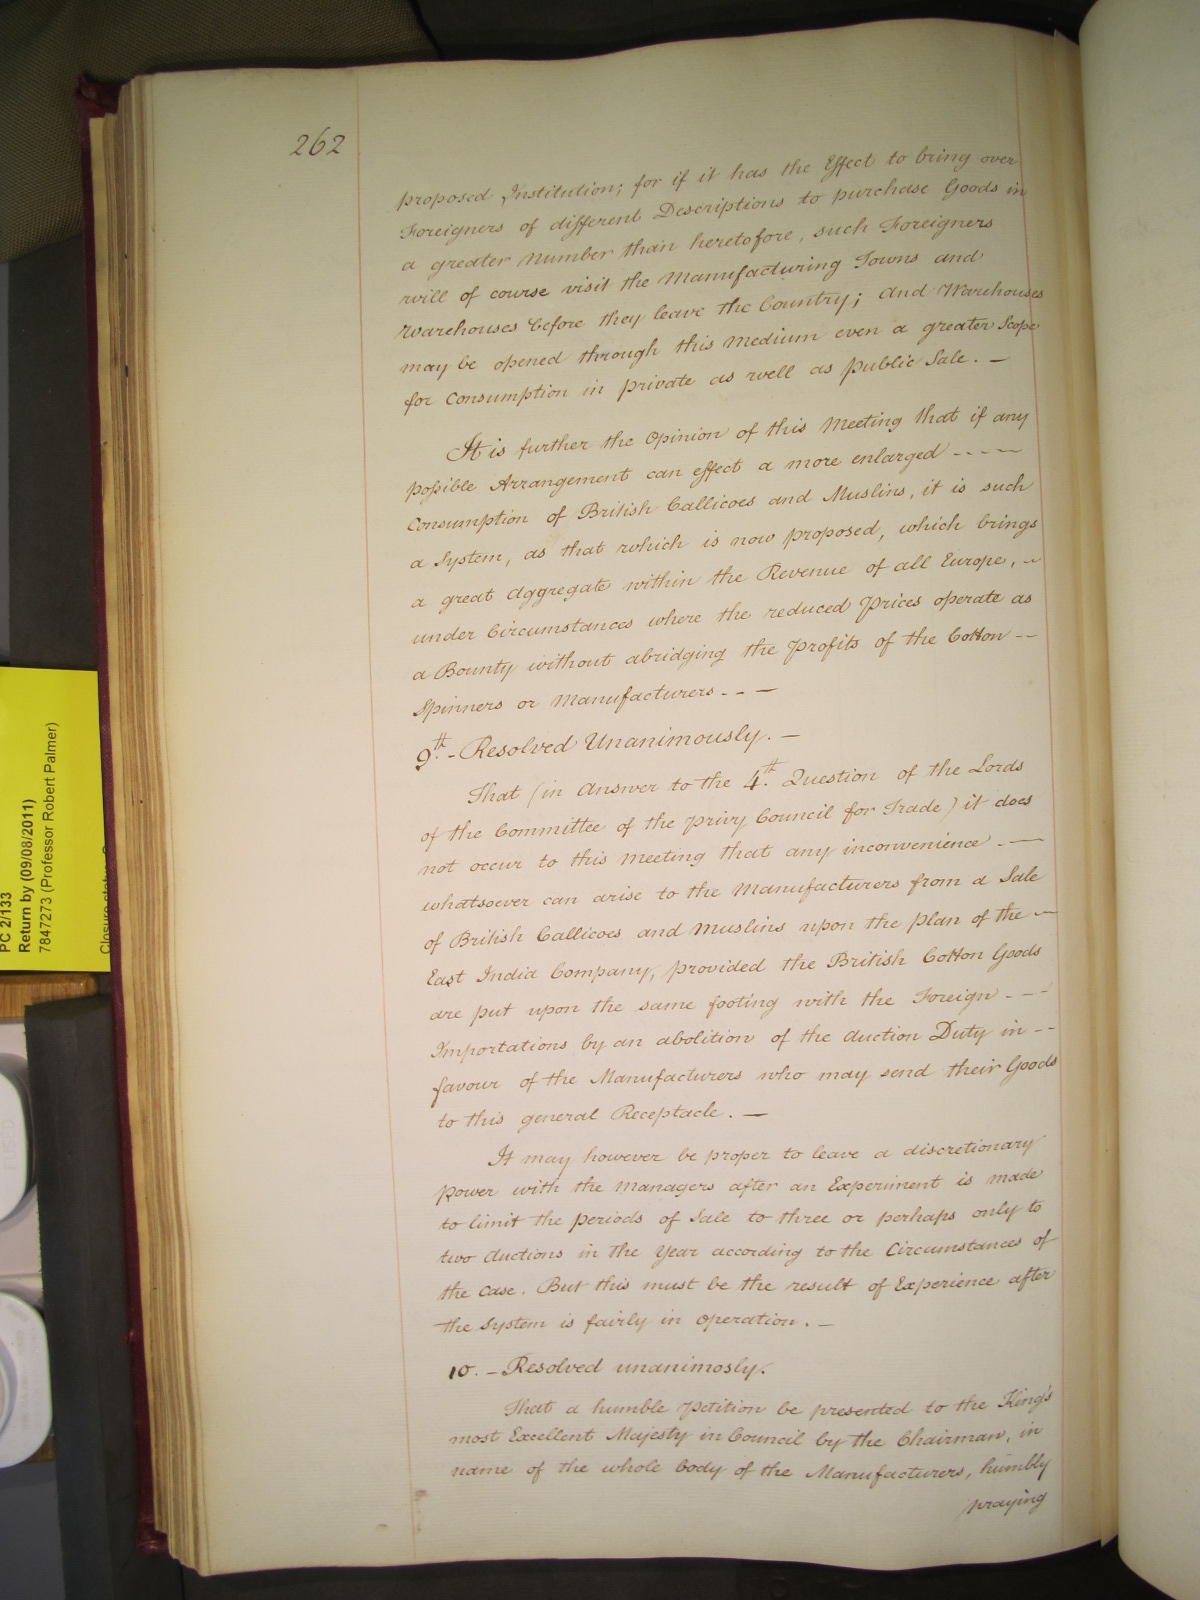 262
proposed Institution; for if it has the Effect to bring over
Foreigners of different Descriptions to purchase Goods in
a greater Number than heretofore, such Foreigners
will of course visit the Manufacturing Towns and
Warehouses before they leave the Country; And Warehouses
may be opened through this Medium even a greater Scope
for Consumption in private as well as public Sale. —
It is further the Opinion of this Meeting that if any
possible Arrangement can effect a more enlarged - - - -
Consumption of British Callicoes and Muslins, it is such
a System, as that which is now proposed, which brings
a great Aggregate within the Revenue of all Europe, -
under Circumstances where the reduced Prices operate as
a Bounty without abridging the Profits of the Cotton - -
Spinners or Manufacturers - - —
9th. - Resolved Unanimously. —
That (in Answer to the 4th. Question of the Lords
of the Committee of the Privy Council for Trade) it does
not occur to this Meeting that any inconvenience - —
whatsoever can arise to the Manufacturers from a Sale
of British Callicoes and Muslins upon the plan of the —
East India Company, provided the British Cotton Goods
are put upon the same footing with the Foreign - - -
Importations by an abolition of the Auction Duty in - -
favour of the Manufacturers who may send their Goods
to this general Receptacle. —
It may however be proper to leave a discretionary
power with the Managers after an Experiment is made
to limit the periods of Sale to three or perhaps only to
two Auctions in the Year according to the Circumstances of
the Case. But this must be the result of Experience after
the System is fairly in Operation. —
10. - Resolved unanimosly.
That a humble Petition be presented to the King's
most Excellent Majesty in Council by the Chairman, in
name of the whole body of the Manufacturers, humbly
praying
PC 2/133
Return by (09/08/2011)
7847273 (Professor Robert Palmer)
Closure status: